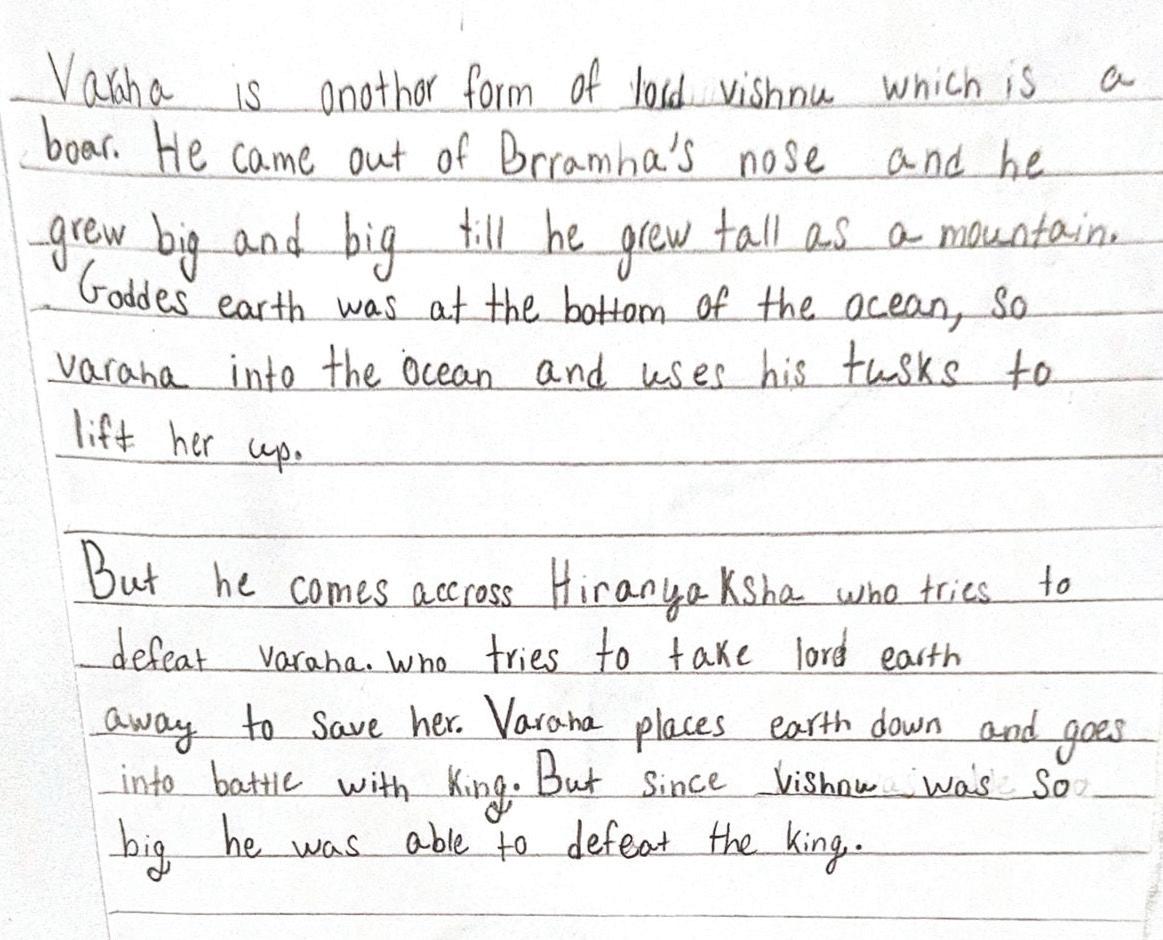 Varaha is onothor form of lord vishnu which is a
boar. He came out of Brramha's nose and he
grew big and big till he grew tall as a mountain.
Goddes earth was at the bottom of the ocean, so
varaha into the ocean and uses his tusks to
lift her up.
But he comes accross Hiranyaksha who tries to
defeat varaha. who tries to take lord earth
away to save her. Varaha places earth down and goes
into battle with king. But since vishnu was so
big he was able to defeat the king.